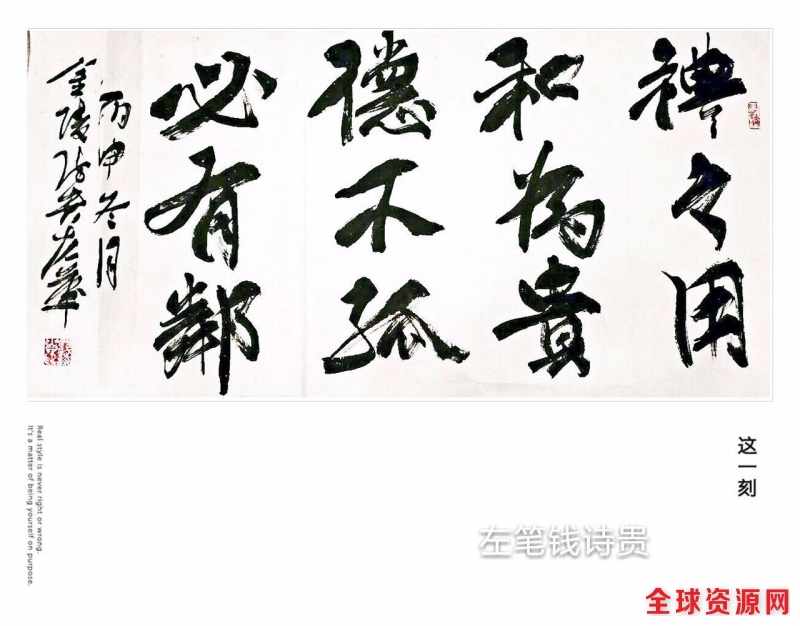 禮之用
和為貴
德不孤
必有鄰
丙申冬月
金陵左筆
这一刻
Real style is never right or wrong.
It's a matter of being yourself on purpose.
左笔钱诗贵
全球资源网